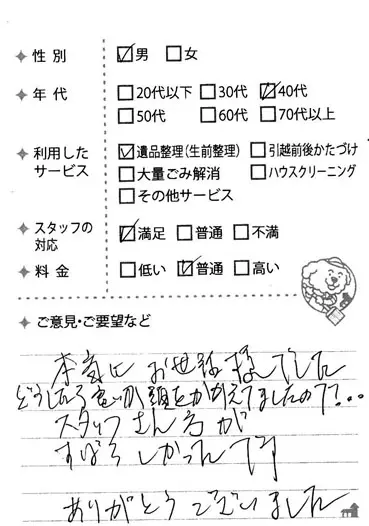 性別 ☑男 ☐女
年代 ☐20代以下 ☐30代 ☑40代
☐50代 ☐60代 ☐70代以上
利用したサービス ☑遺品整理(生前整理) ☐引越前後かたづけ
☐大量ごみ解消 ☐ハウスクリーニング
☐その他サービス
スタッフの対応 ☑満足 ☐普通 ☐不満
料金 ☐低い ☑普通 ☐高い
ご意見・ご要望など
本気に お世話様でした
どうしたら良いか頭をかかえてましたので?..
スタッフさん方が
すばらしかったです
ありがとうございました